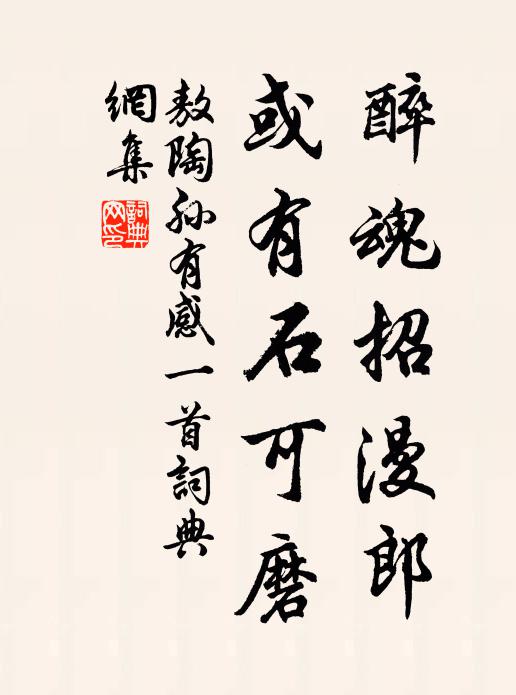 醉魂招漫郎
或有石可磨
敖陶孙有感一首詞典
網集
詞典
网印